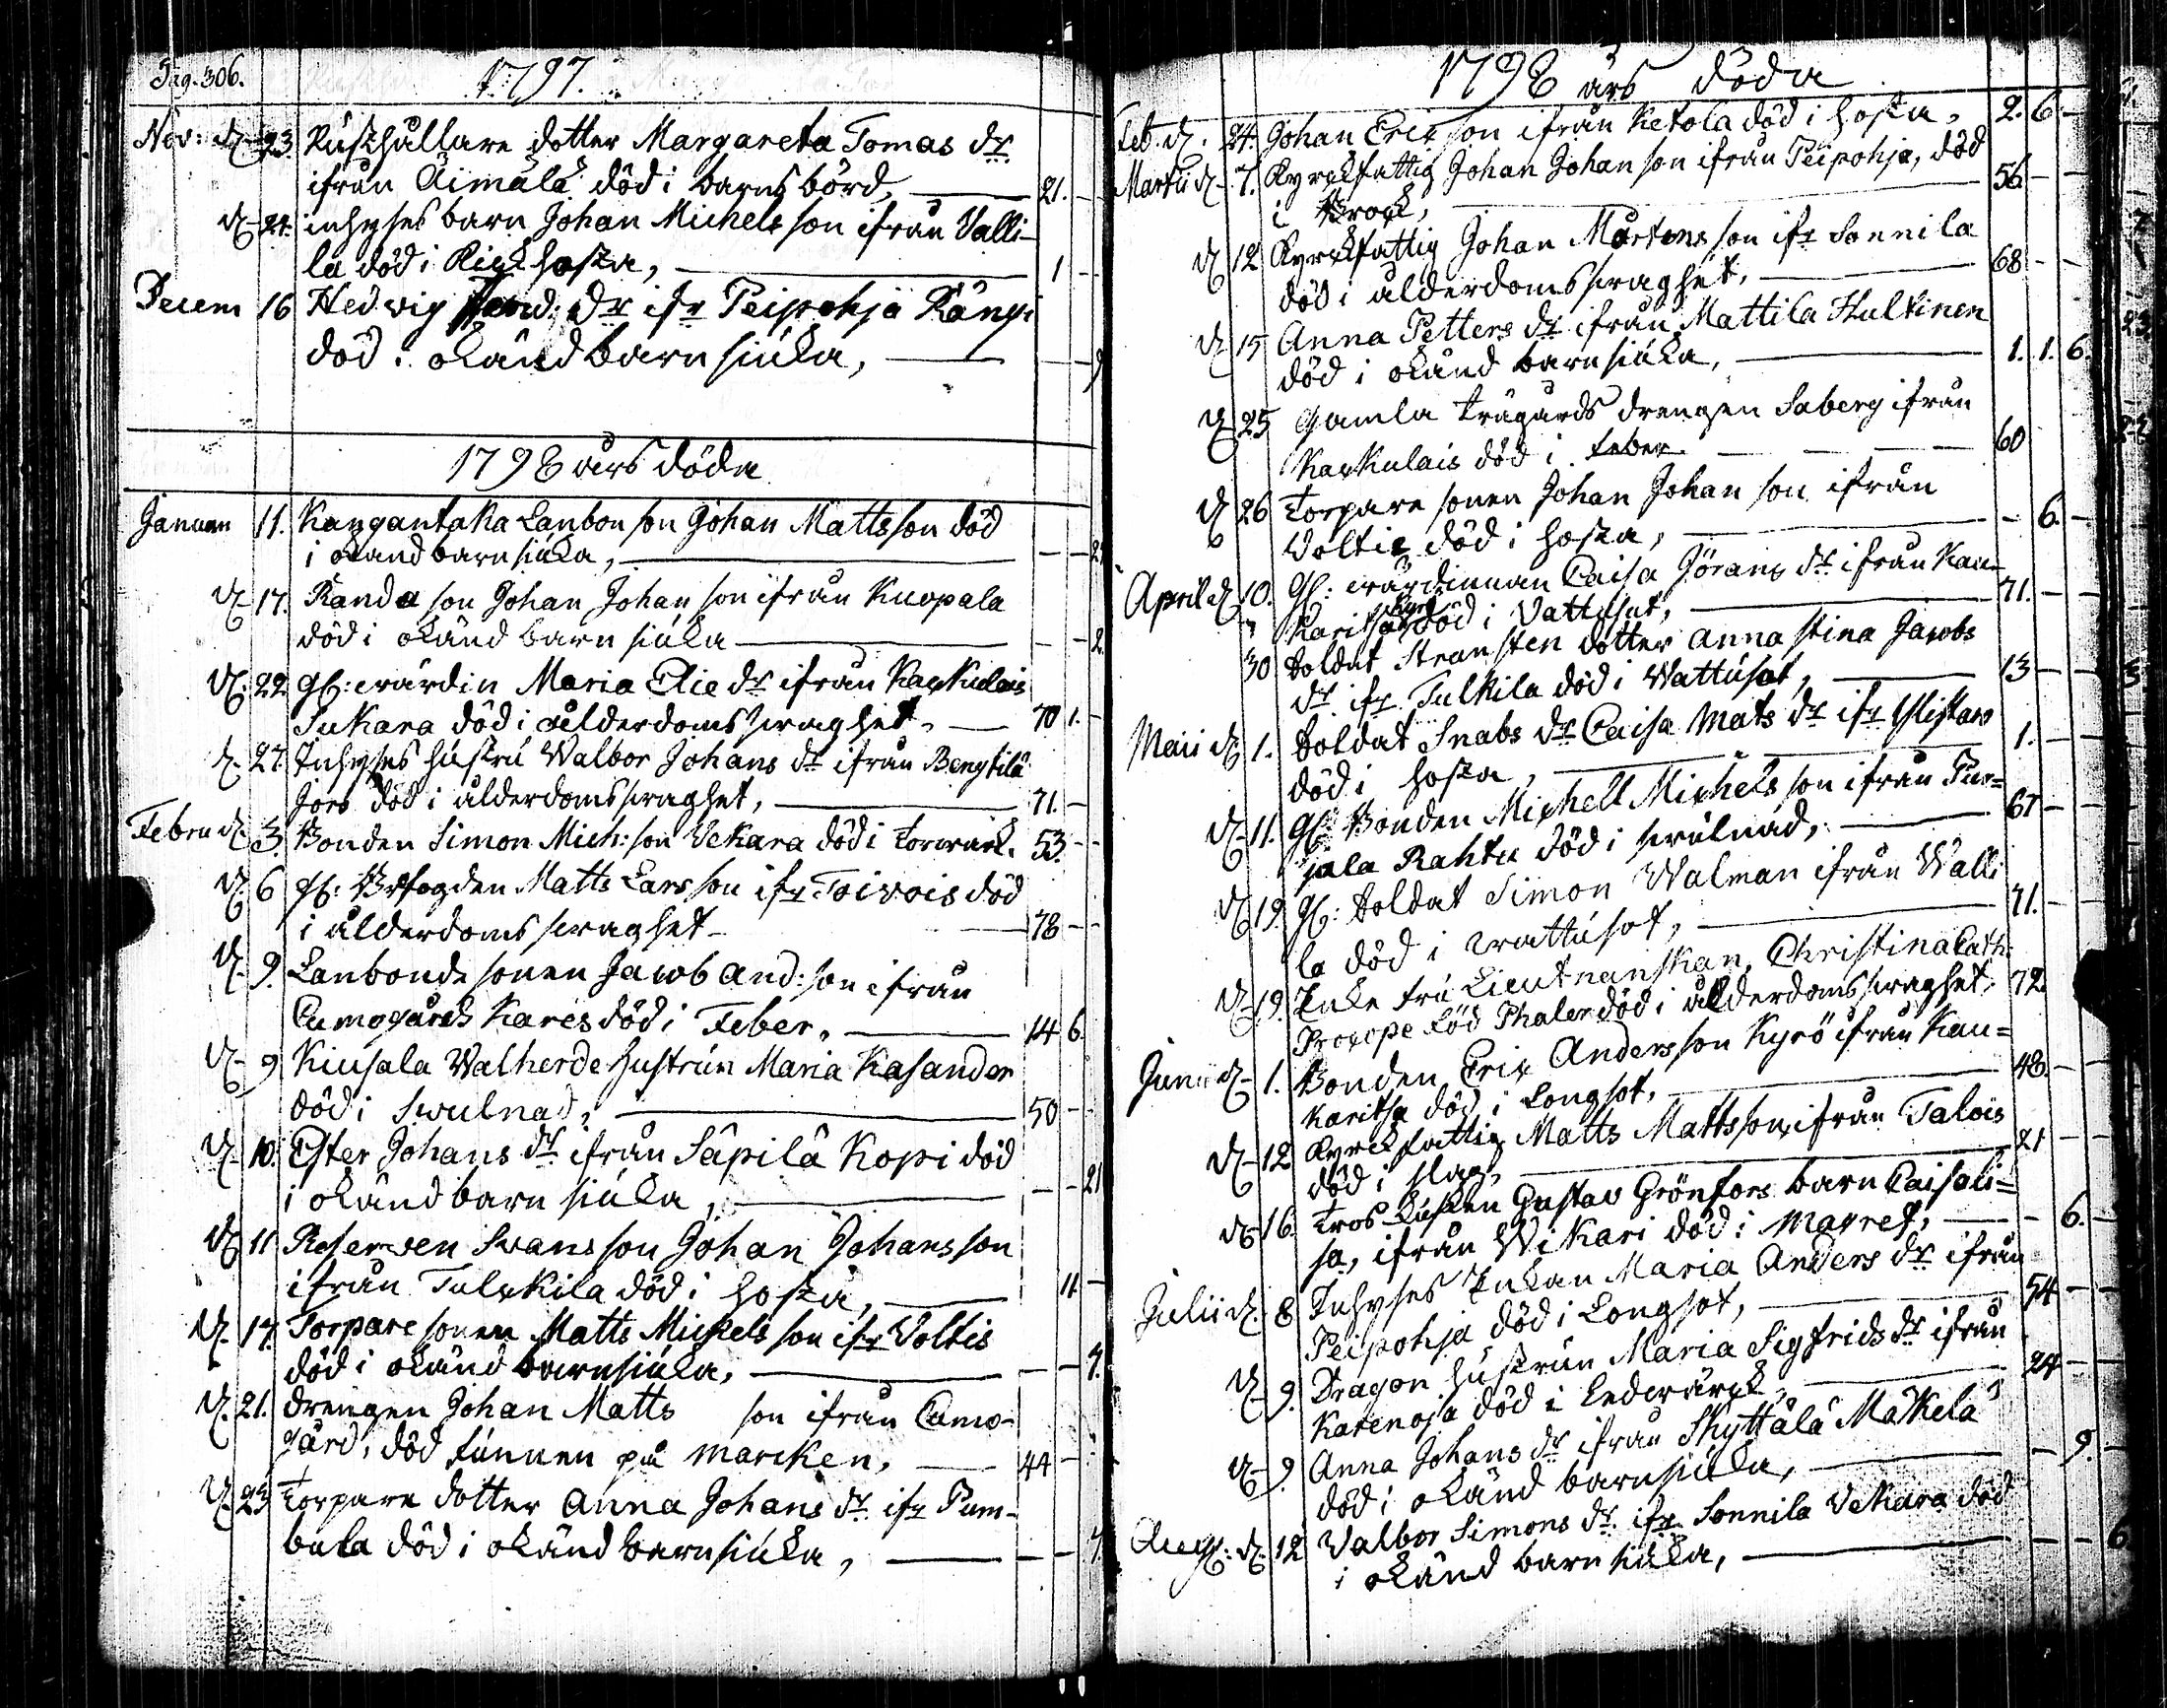 Pag. 306.
1797.
Nov: d. 23. Rusthållare dotter Margareta Tomas dr
ifrån Äimälä död i barnsbörd, 21. -
d. 24. inhyses barn Johan Michels son ifrån Valli-
la död i Kickhosta, 1 -
Decem 16 Hedvig And: dr ifr Peipohja Käny
död i okänd barnsiuka, - 9
1798 års döda
Januari 11. Kangantaka Lanbon son Johan Mattsson död
i okänd barnsiuka, - - 21
d. 17. Randa son Johan Johan son ifrån Kuopala
död i okänd barnsiuka - - 2
d. 22 gl: wärdin Maria Elie dr ifrån Karkulais
Sukara död i ålderdomsswaghet. 70 1. -
d. 27 Inhyses hustru Walbor Johans dr ifrån Bengtilä
Jors död i ålderdomsswaghet, 71. -
Febru d. 3. Bonden Simon Mich: son Vekara död i Torvärk. 53. -
d. 6 gl: Matts Lars son ifr Toivois död
i ålderdoms swaghet 78 - -
d. 9. Lanbonde sonen Jacob And: son ifrån
Cumogårds Kares död i Feber, 14 6.
d. 9 Kiusala Walherde hustrun Maria Kasander
död i Swulnad, 50 - -
d. 10. Ester Johans dr ifrån Säpilä Kopi död
i okänd barn siuka, - - 21
d. 11 Reserven Svans son Johan Johansson
ifrån Tulckila död i hosta, 11 -
d. 17. Torpare sonen Matts Mickels son ifr Voltis
död i okänd barnsiuka, - - 7.
d. 21. drengen Johan Matts son ifrån Cumo-
gård, död funnen på marcken, 44 -
d. 23 Torpare dotter Anna Johans dr ifr Pum-
bula död i okänd barnsiuka, - - 7.
1798 års döda
Feb. d. 24. Johan Eric son ifrån Ketola död i hosta, 2. 6 -
Martii d. 7. Kyrckfattig Johan Johan son ifrån Peipohja, död
i Brock, 56 - -
d. 12 Kyrckfattig Johan Mårtens son ifr Sonnila
död i ålderdomsswaghet, 68 - -
d. 15 Anna Petters dr ifrån Mattila Hultinen
död i okänd barnsiuka, 1. 1. 6.
d. 25 Gamla trägårds drengen Saberg ifrån
Karkulais död i feber 60
d. 26 Torpare sonen Johan Johan son ifrån
Voltis död i hosta, - 6. -
April d. 10. gl: wärdinnan Caisa Jörans dr ifrån Kau-
karitsa Kyrö död i Vattusot, 71. -
" 30 Soldat Stransten dotter Anna Stina Jacobs
dr ifr Tulkila död i Wattusot, 13 -
Maii d. 1. Soldat Snabs dr Caisa Mats dr ifr Ylistaro
död i hosta, 1. -
d. 11. gl: Bonden Michell Michels son ifrån Pur-
jala Rahtu död i swulnad, 67 -
d. 19. gl: Soldat Simon Walman ifrån Walli
la död i wattusot, 71. -
d. 19. Enke fru Lieutnanskan Christina Cath:
Procope född Thaler död i ålderdomsswaghet, 72.
Junii d. 1. Bonden Eric Anders son Kyrö ifrån Kau=
karitsa död i Longsot, 48. -
d. 12 Kyrckfattig Matts Mattsson ifrån Talois
död i slag, 21 -
d. 16. Tros Kusken Gustav Grönfors barn Caisali=
sa, ifrån Wikari död i Magref, - 6. -
Julii d. 8 Inhyses Enkan Maria Anders dr ifrån
Peipohja död i Longsot, 54 -
d. 9. Dragon hustrun Maria Sigfrids dr ifrån
Karenoja död i ledwärck, 24 -
d. 9. Anna Johans dr ifrån Skyttälä Mäkelä
död i okänd barnsiuka, - 9. -
Aug: d. 12 Valbor Simons dr ifr Sonnila Vekara död
i okänd barn siuka, - - 6